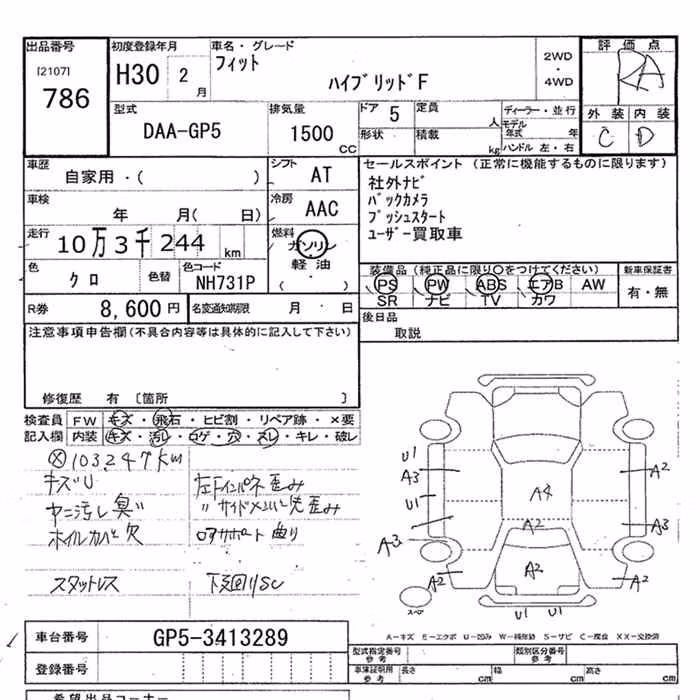 出品番号 初度登録年月 車名・グレード 評価点
[2107] フィット 2WD
786 H30 2 月 ハイブリッドF ・ RA
4WD
型式 排気量 ドア 5 定員 人 ディーラー・並行 外装 内装
DAA-GP5 1500 CC 形状 積載 kg モデル年式 年 C D
ハンドル 左・右
車歴 シフト AT セールスポイント (正常に機能するものに限ります)
自家用・( ) 社外ナビ
車検 冷房 AAC バックカメラ
年 月( 日) プッシュスタート
走行 燃料 ガソリン ユーザー買取車
10万3千244 km 軽・油
( )
色 クロ 色替 色コード NH731P 装備品 (純正品に限り○をつけてください) 新車保証書
PS PW ABS エアB AW 有・無
SR ナビ TV カワ
R券 8,600円 名変通知期限 月 日 後日品
取説
注意事項申告欄(不具合内容等は具体的に記入して下さい)
修復歴 有 [箇所 ]
検査員 FW キズ・飛石・ヒビ割・リペア跡・×要
記入欄 内装 キズ・汚レ・コゲ・穴・スレ・キレ・破レ
103,247km
キズU 左下インパネ歪み
ヤニ汚レ 臭 〃サイドメンバー先歪み
ホイルカバー欠 コアサポート曲り
スタットレス 下廻りSC
U1
A3 A2
U1 A4
A3 A2 A3
A2 A2 A2
スペア U1 U1
A-キズ E-エクボ U-凹み W-補修跡 S-サビ C-腐食 XX-交換済
車台番号 GP5-3413289 型式指定番号 参考 類別区分番号 参考
登録番号 車庫証明用 参考 長さ cm 幅 cm 高さ cm
希望出品コーナー